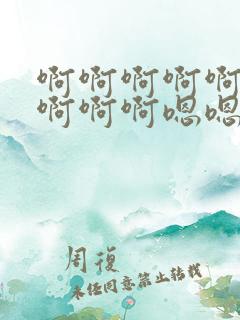 啊啊啊啊啊
啊啊啊嗯嗯
周復
未经同意禁止转载